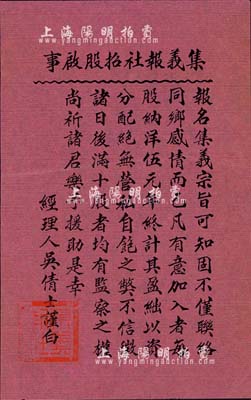 上海陽明拍賣
集義報社招股啟事
報名集義宗旨可知固不僅聯絡
同鄉感情而已凡有意加入者每
股納洋伍元年終計其盈絀以資
分配絕無營私自飽之弊不信徵
諸日後滿十股者均有監察之權
尚祈諸君樂予援助是幸
經理人吳倩士謹白